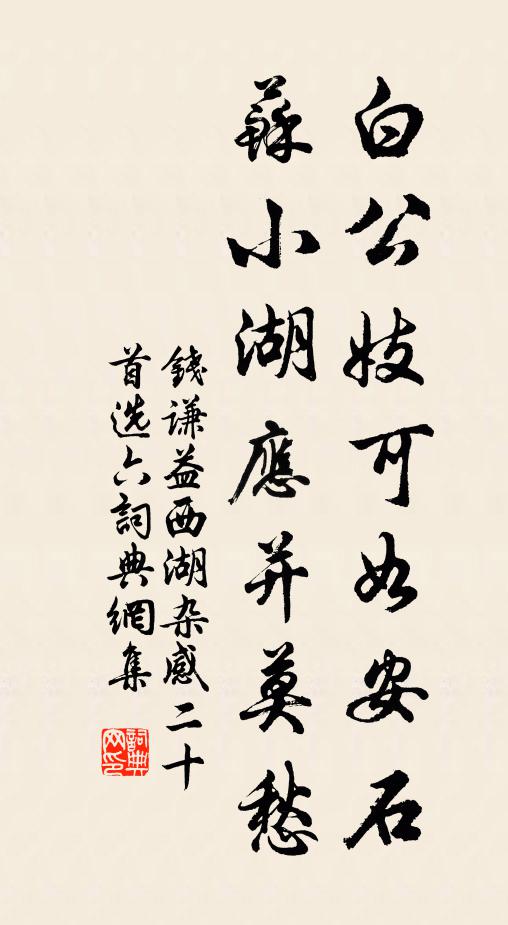 白公妓可如安石
蘇小湖應并莫愁
錢謙益西湖杂感二十
首选六詞典網集
詞典
网印